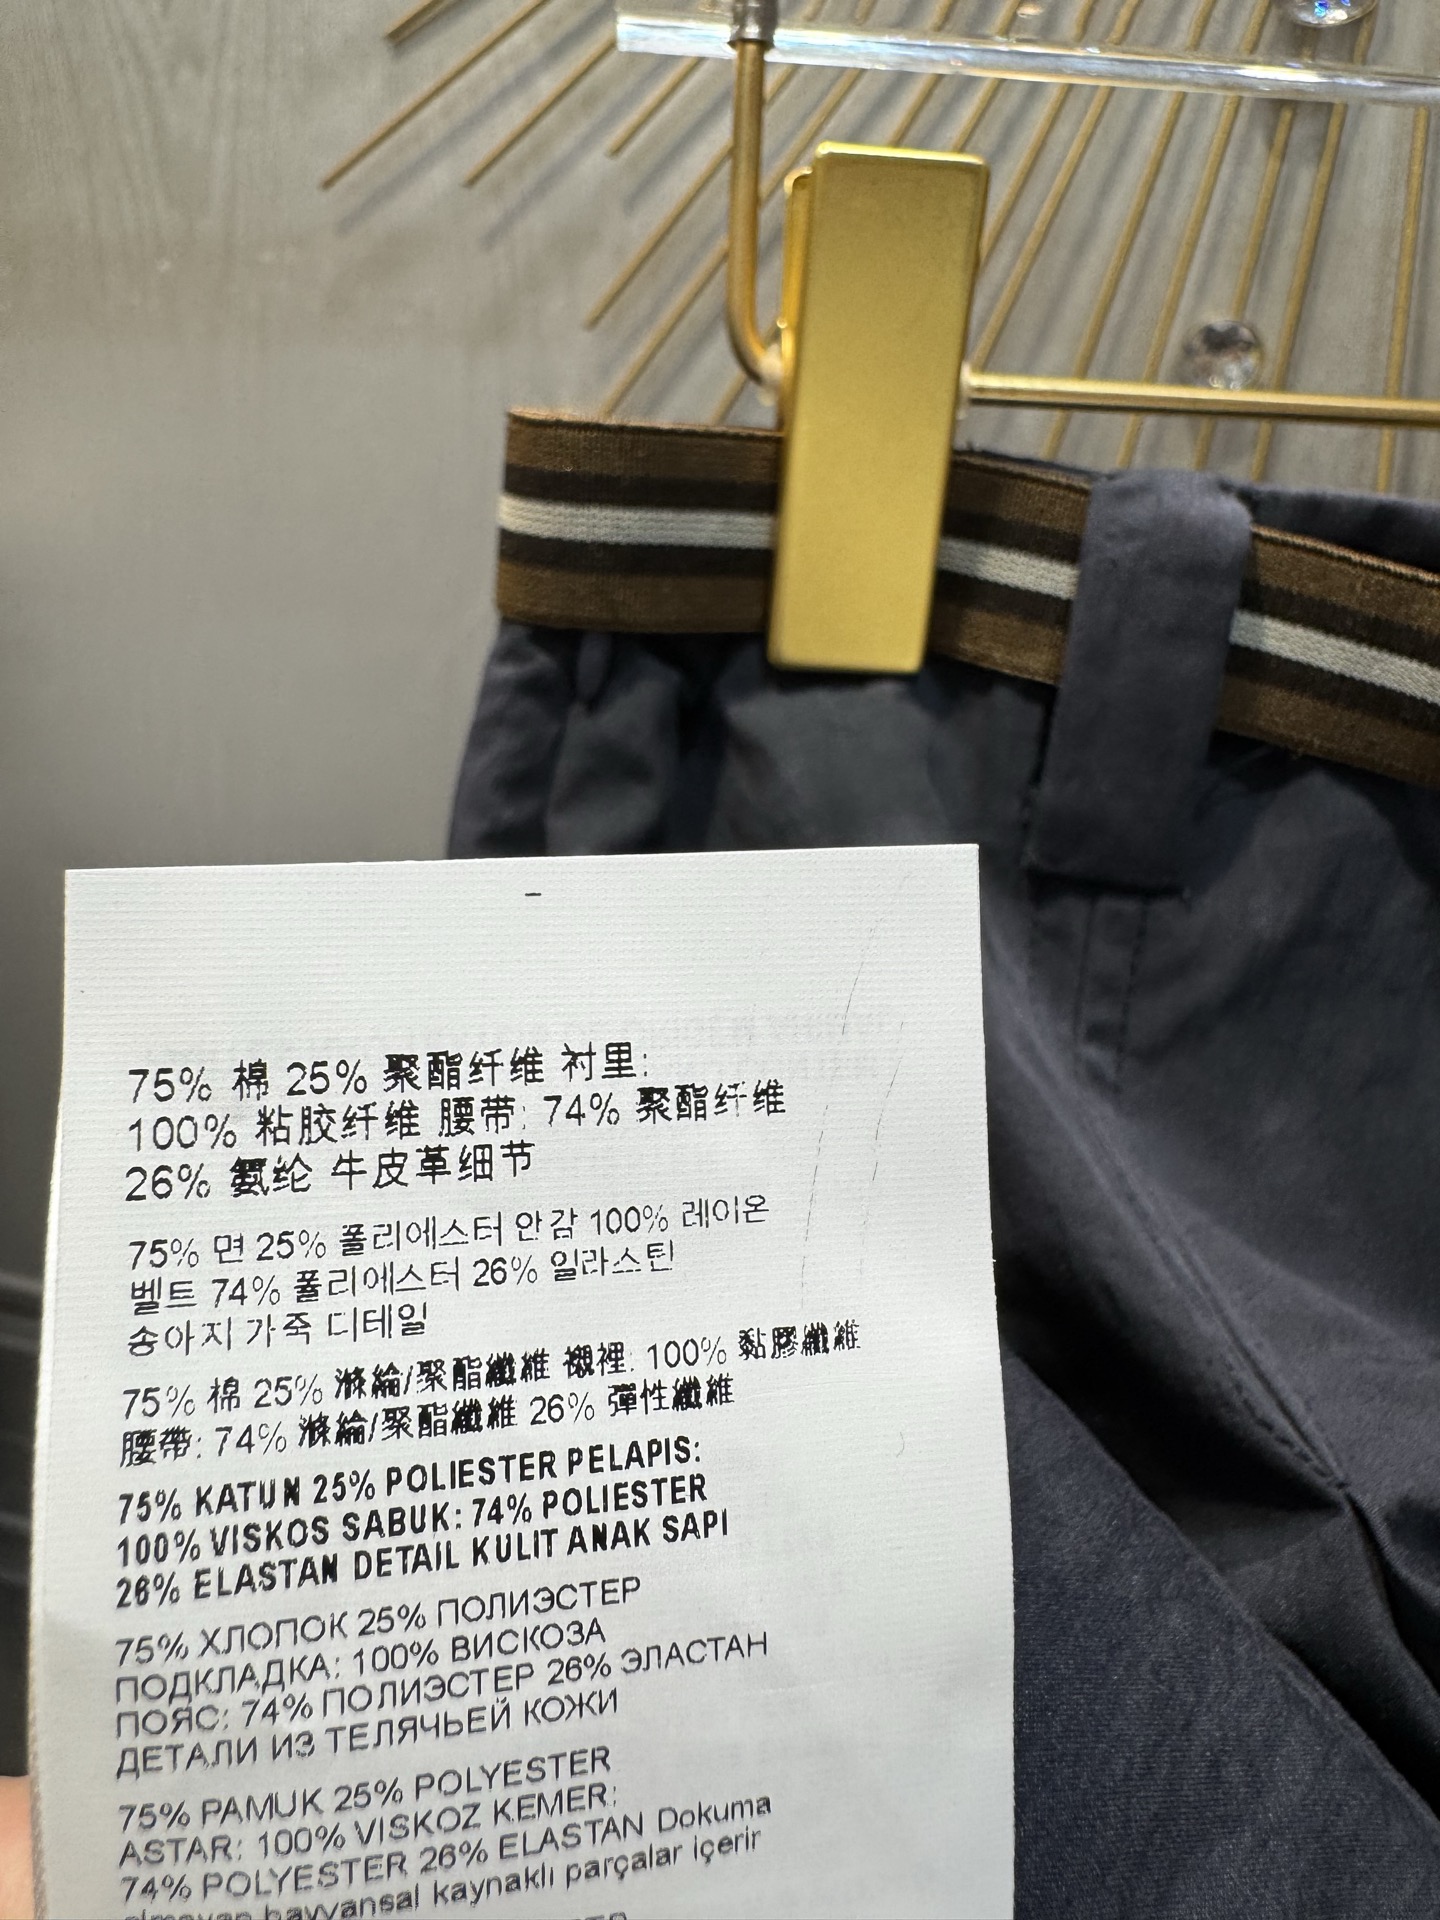 75% 棉 25% 聚酯纤维 衬里:
100% 粘胶纤维 腰带: 74% 聚酯纤维
26% 氨纶 牛皮革细节
75% 면 25% 폴리에스터 안감 100% 레이온
벨트 74% 폴리에스터 26% 일라스틴
송아지 가죽 디테일
75% 棉 25% 滌綸/聚酯纖維 襯裡: 100% 黏膠纖維
腰帶: 74% 滌綸/聚酯纖維 26% 彈性纖維
75% KATUN 25% POLIESTER PELAPIS:
100% VISKOS SABUK: 74% POLIESTER
26% ELASTAN DETAIL KULIT ANAK SAPI
75% ХЛОПОК 25% ПОЛИЭСТЕР
ПОДКЛАДКА: 100% ВИСКОЗА
ПОЯС: 74% ПОЛИЭСТЕР 26% ЭЛАСТАН
ДЕТАЛИ ИЗ ТЕЛЯЧЬЕЙ КОЖИ
75% PAMUK 25% POLYESTER
ASTAR: 100% VISKOZ KEMER:
74% POLYESTER 26% ELASTAN Dokuma
olmayan hayvansal kaynaklı parçalar içerir